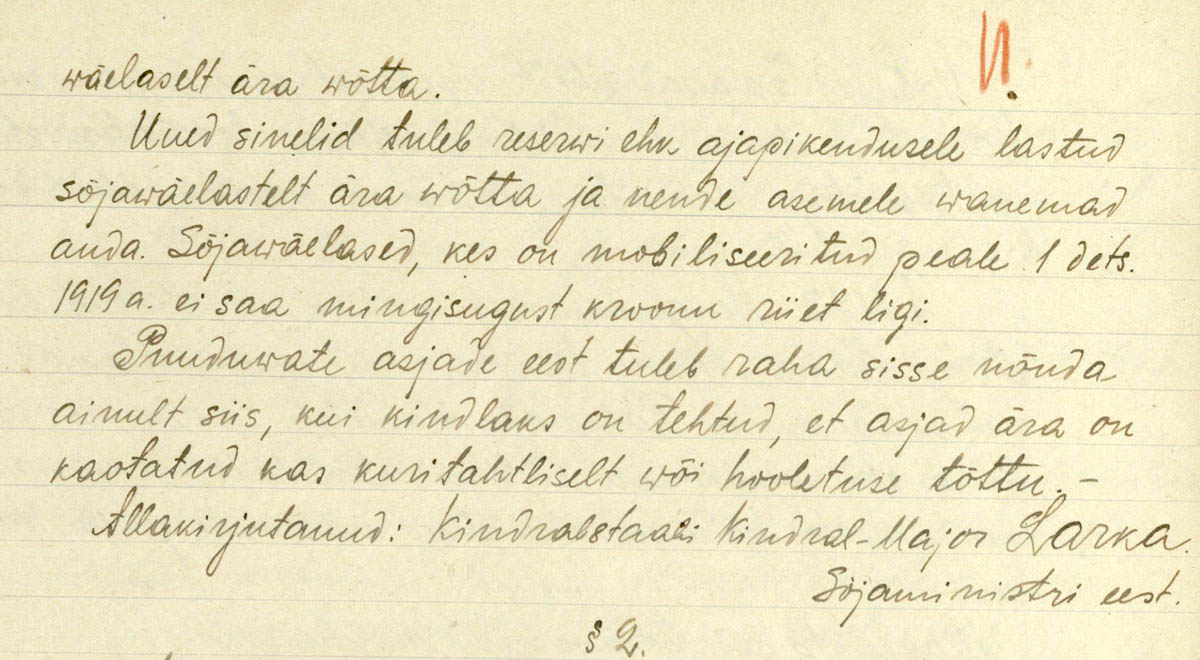 wäelaselt ära wõtta.
Uued sinelid tuleb reserwi ehk ajapikendusele lastud
sõjawäelastelt ära wõtta ja nende asemele wanemad
anda. Sõjawäelased, kes on mobiliseeritud peale 1 dets.
1919 a. ei saa mingisugust kroonu riiet ligi.
Puuduwate asjade eest tuleb raha sisse nõuda
ainult siis, kui kindlaks on tehtud, et asjad ära on
kaotatud kas kuritahtliselt wõi hooletuse tõttu. –
Allakirjutanud: Kindralstaabi Kindral-Major Larka.
Sõjaministri eest.
§ 2.